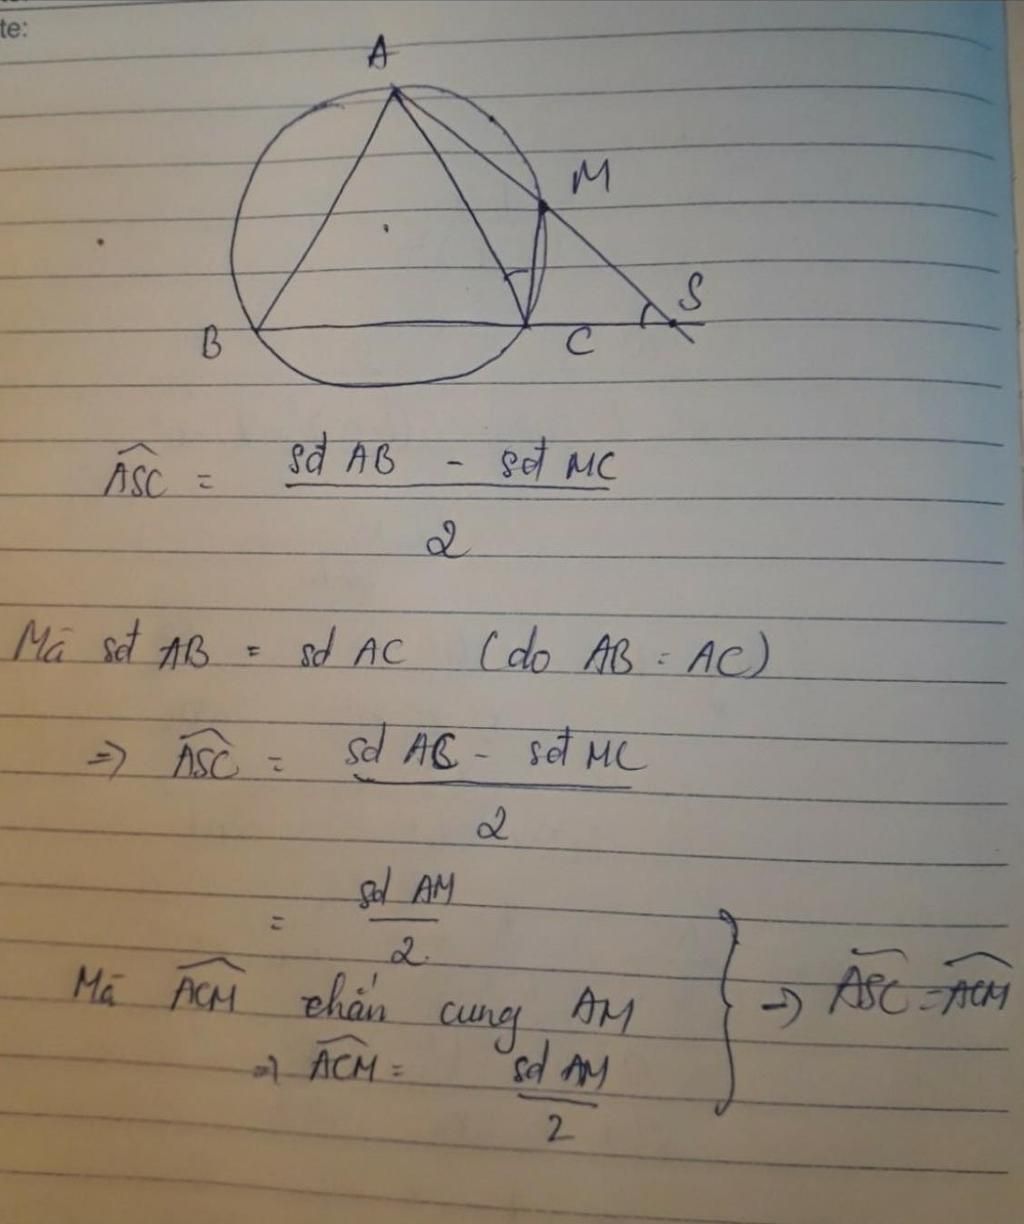 te:
A
M
S
B
C
ASC = sđ AB - sđ MC
2
Mà sđ AB = sđ AC (do AB = AC)
=> ASC = sđ AC - sđ MC
2
= sđ AM
2
Mà ACM chắn cung AM
=> ACM = sđ AM
2
=> ASC = ACM